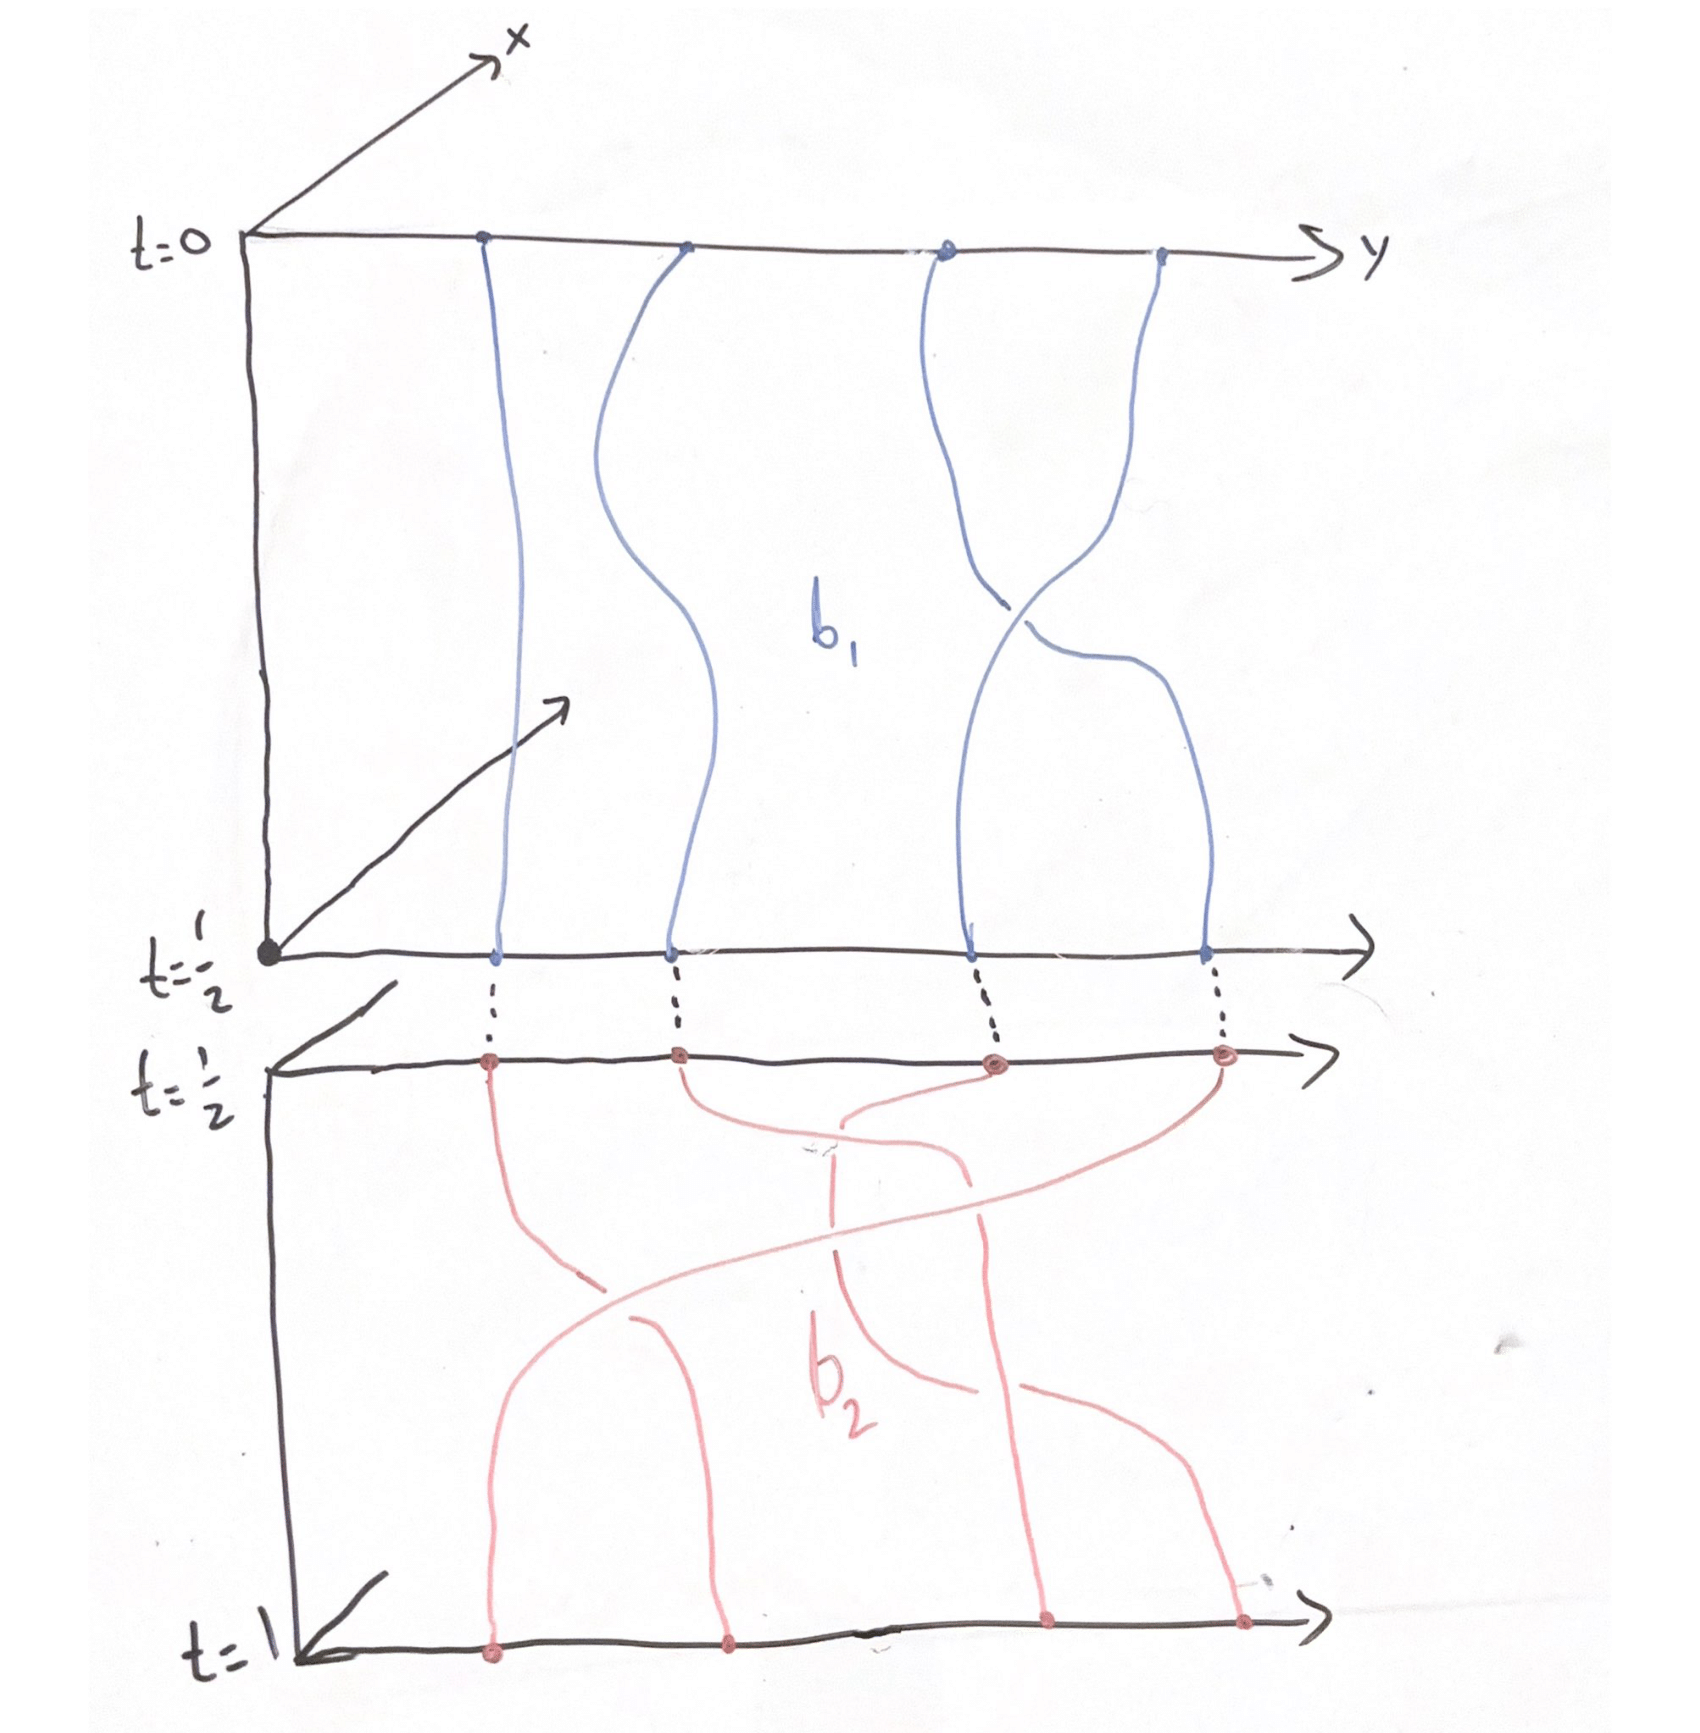 x
t=0
y
b₁
t=1/2
t=1/2
b₂
t=1